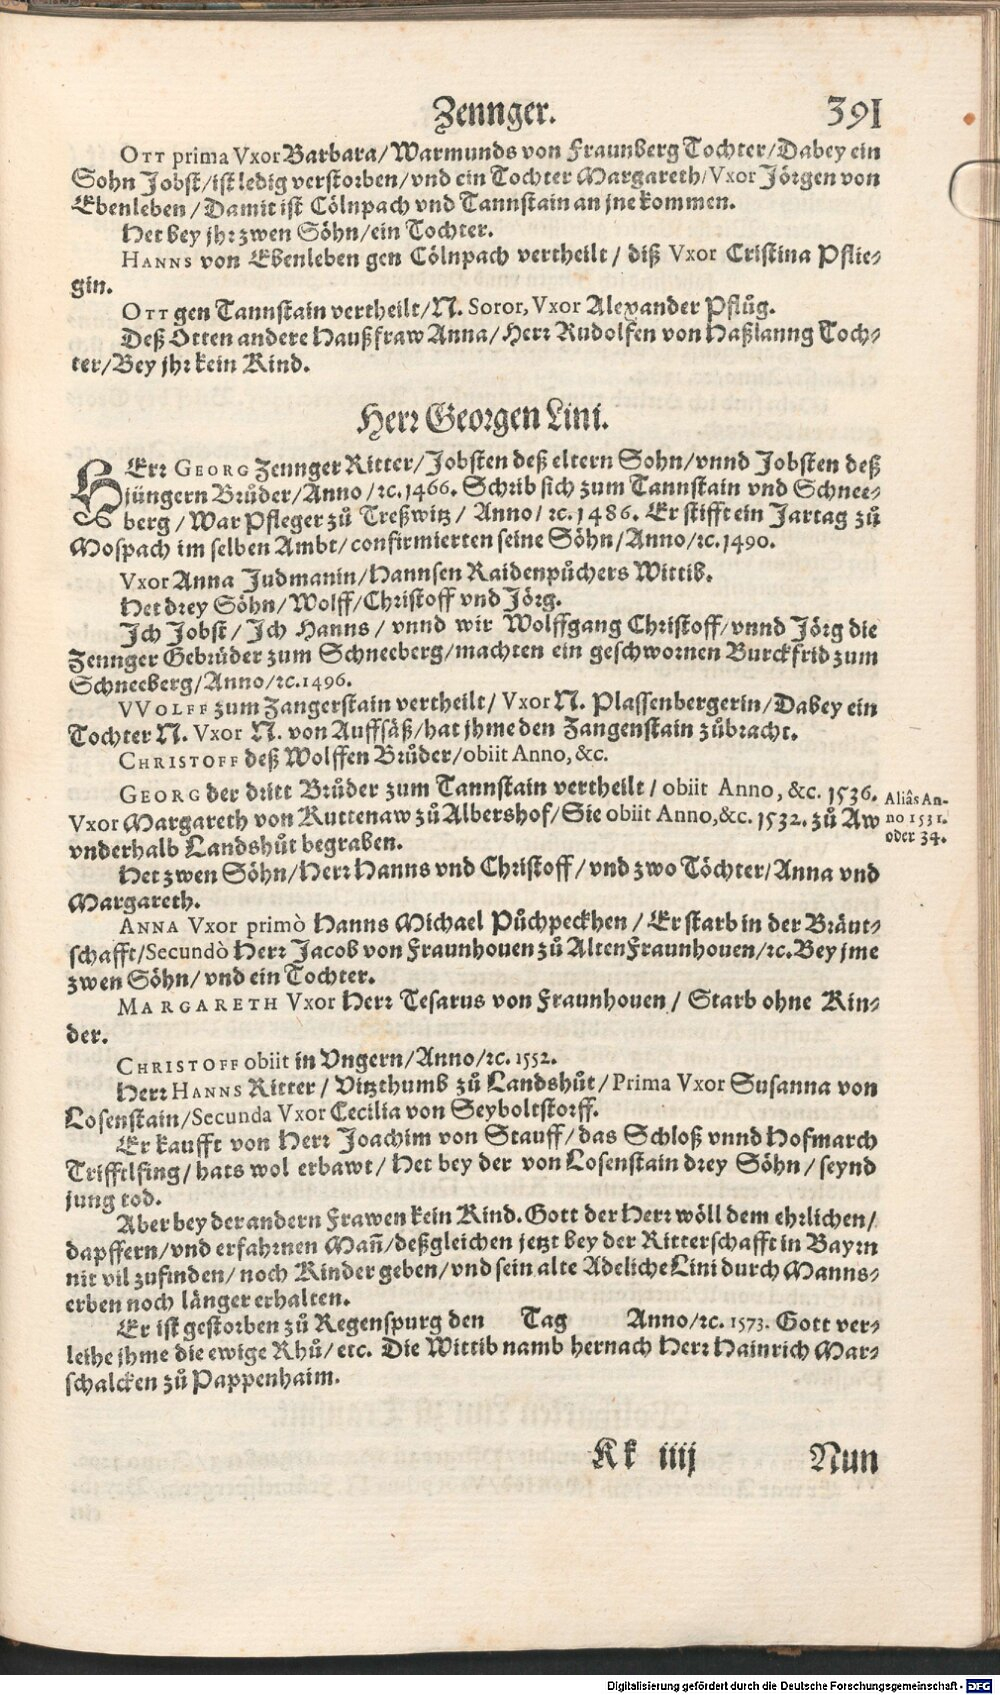 Zennger. 391
OTT prima Vxor Barbara/Warmunds von Fraunberg Tochter/Dabey ein
Sohn Jobst/ist ledig verstorben/vnd ein Tochter Margareth/Vxor Jörgen von
Ebenleben/Damit ist Cölnpach vnd Tannstain an jne kommen.
Het bey jhr zwen Söhn/ein Tochter.
HANNS von Ebenleben gen Cölnpach vertheilt/ diß Vxor Cristina Pflie-
gin.
OTT gen Tannstain vertheilt/N. Soror, Vxor Alexander Pflůg.
Deß Otten andere Haußfraw Anna/Herr Rudolfen von Haßlanng Toch-
ter/Bey jhr kein Kind.
Herr Georgen Lini.
HErr GEORG Zennger Ritter/Jobsten deß eltern Sohn/vnnd Jobsten deß
jüngern Brůder/Anno/ꝛc. 1466. Schrib sich zum Tannstain vnd Schnee-
berg/War Pfleger zů Treßwitz/ Anno/ꝛc. 1486. Er stifft ein Jartag zů
Mospach im selben Ambt/confirmierten seine Söhn/Anno/ꝛc. 1490.
Vxor Anna Judmanin/Hannsen Raidenpůchers Wittib.
Het drey Söhn/Wolff/Christoff vnd Jörg.
Ich Jobst/ Ich Hanns/ vnnd wir Wolffgang Christoff/vnnd Jörg die
Zennger Gebrüder zum Schneeberg/machten ein geschwornen Burckfrid zum
Schneeberg/Anno/ꝛc. 1496.
VVOLFF zum Zangerstain vertheilt/ Vxor N. Plassenbergerin/Dabey ein
Tochter N. Vxor N. von Auffsäß/hat jhme den Zangenstain zůbracht.
CHRISTOFF deß Wolffen Brůder/obiit Anno, &c.
GEORG der dritt Brůder zum Tannstain vertheilt/ obiit Anno, &c. 1536.
Vxor Margareth von Ruttenaw zů Albershof/Sie obiit Anno,&c. 1532. zů Aw
vnderhalb Landshůt begraben.
Aliâs An-
no 1531.
oder 34.
Het zwen Söhn/Herr Hanns vnd Christoff/vnd zwo Töchter/Anna vnd
Margareth.
ANNA Vxor primò Hanns Michael Půchpeckhen/Er starb in der Bräut-
schafft/Secundò Herr Jacob von Fraunhouen zů Alten Fraunhouen/ꝛc. Bey jme
zwen Söhn/vnd ein Tochter.
MARGARETH Vxor Herr Tesarus von Fraunhouen/ Starb ohne Kin-
der.
CHRISTOFF obiit in Vngern/Anno/ꝛc. 1552.
Herr HANNS Ritter/ Vitzthumb zů Landshůt/Prima Vxor Susanna von
Losenstain/Secunda Vxor Cecilia von Seyboltstorff.
Er kaufft von Herr Joachim von Stauff/das Schloß vnnd Hofmarch
Trifftlfing/hats wol erbawt/ Het bey der von Losenstain drey Söhn/seynd
jung tod.
Aber bey der andern Frawen kein Kind. Gott der Herr wöll dem ehrlichen/
dapffern/vnd erfahrnen Mañ/deßgleichen jetzt bey der Ritterschafft in Bayrn
nit vil zufinden/noch Kinder geben/vnd sein alte Adeliche Lini durch Manns-
erben noch länger erhalten.
Er ist gestorben zů Regenspurg den Tag Anno/ꝛc. 1573. Gott ver-
leihe jhme die ewige Rhů/etc. Die Wittib namb hernach Herr Hainrich Mar-
schalcken zů Pappenhaim.
Kk iiij Nun
Digitalisierung gefördert durch die Deutsche Forschungsgemeinschaft - DFG